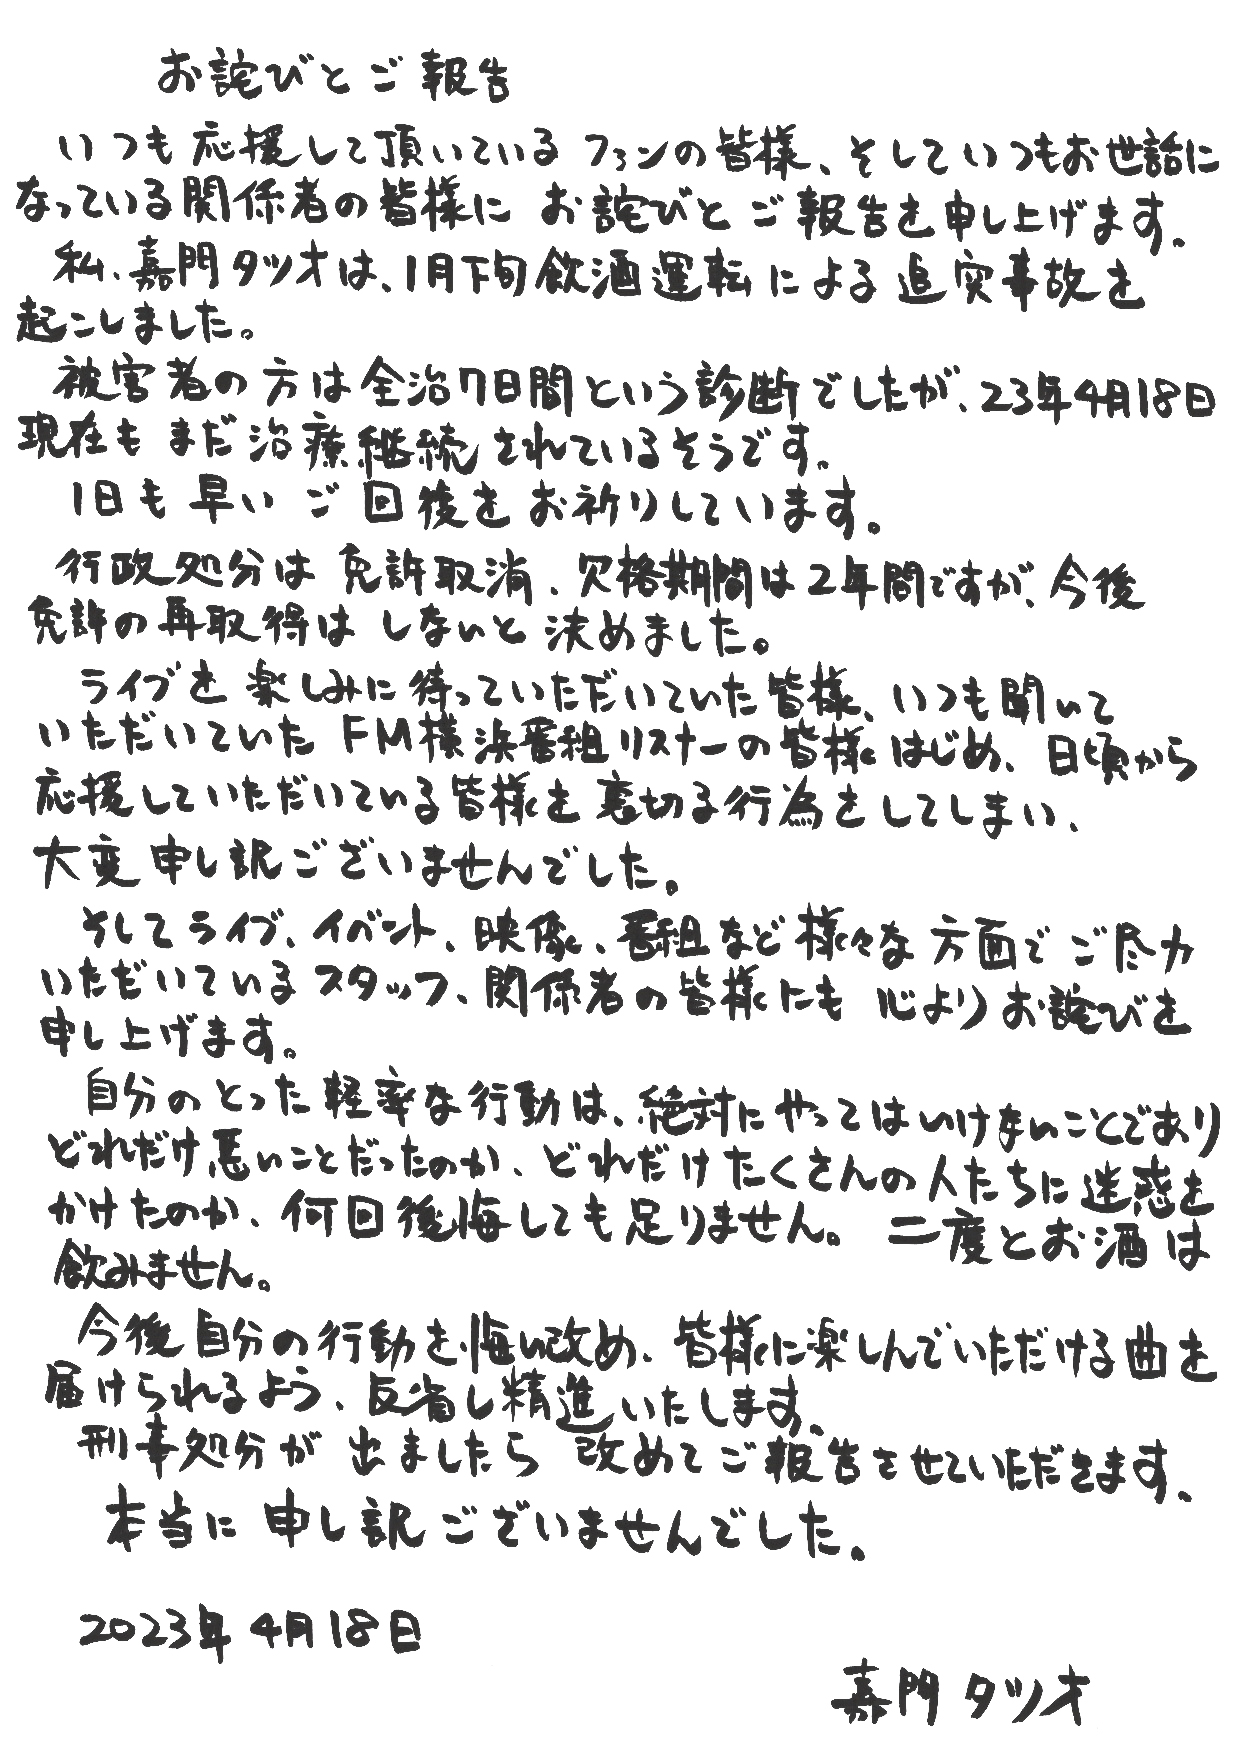 お詫びとご報告
いつも応援して頂いているファンの皆様、そしていつもお世話に
なっている関係者の皆様に お詫びとご報告を申し上げます。
私、嘉門タツオは、1月下旬飲酒運転による追突事故を
起こしました。
被害者の方は全治7日間という診断でしたが、23年4月18日
現在もまだ治療継続されているそうです。
1日も早いご回復をお祈りしています。
行政処分は免許取消、欠格期間は2年間ですが、今後
免許の再取得はしないと決めました。
ライブを楽しみに待っていただいていた皆様、いつも聞いて
いただいていたFM横浜番組リスナーの皆様はじめ、日頃から
応援していただいている皆様を裏切る行為をしてしまい、
大変申し訳ございませんでした。
そしてライブ、イベント、映像、番組など様々な方面でご尽力
いただいているスタッフ、関係者の皆様にも心よりお詫びを
申し上げます。
自分のとった軽率な行動は、絶対にやってはいけないことであり
どれだけ悪いことだったのか、どれだけたくさんの人たちに迷惑を
かけたのか、何回後悔しても足りません。二度とお酒は
飲みません。
今後自分の行動を悔い改め、皆様に楽しんでいただける曲を
届けられるよう、反省し精進いたします。
刑事処分が出ましたら改めてご報告させていただきます。
本当に申し訳ございませんでした。
2023年4月18日
嘉門タツオ